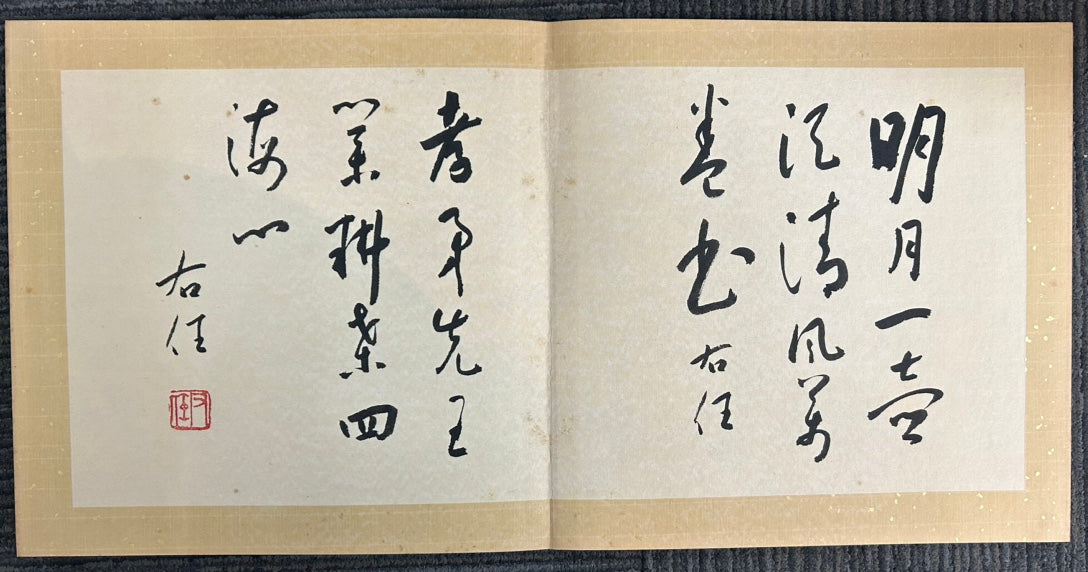 明月一壺
酒清風萬
卷書
右任
孝弟先王
業耕桑四
海心
右任
右任